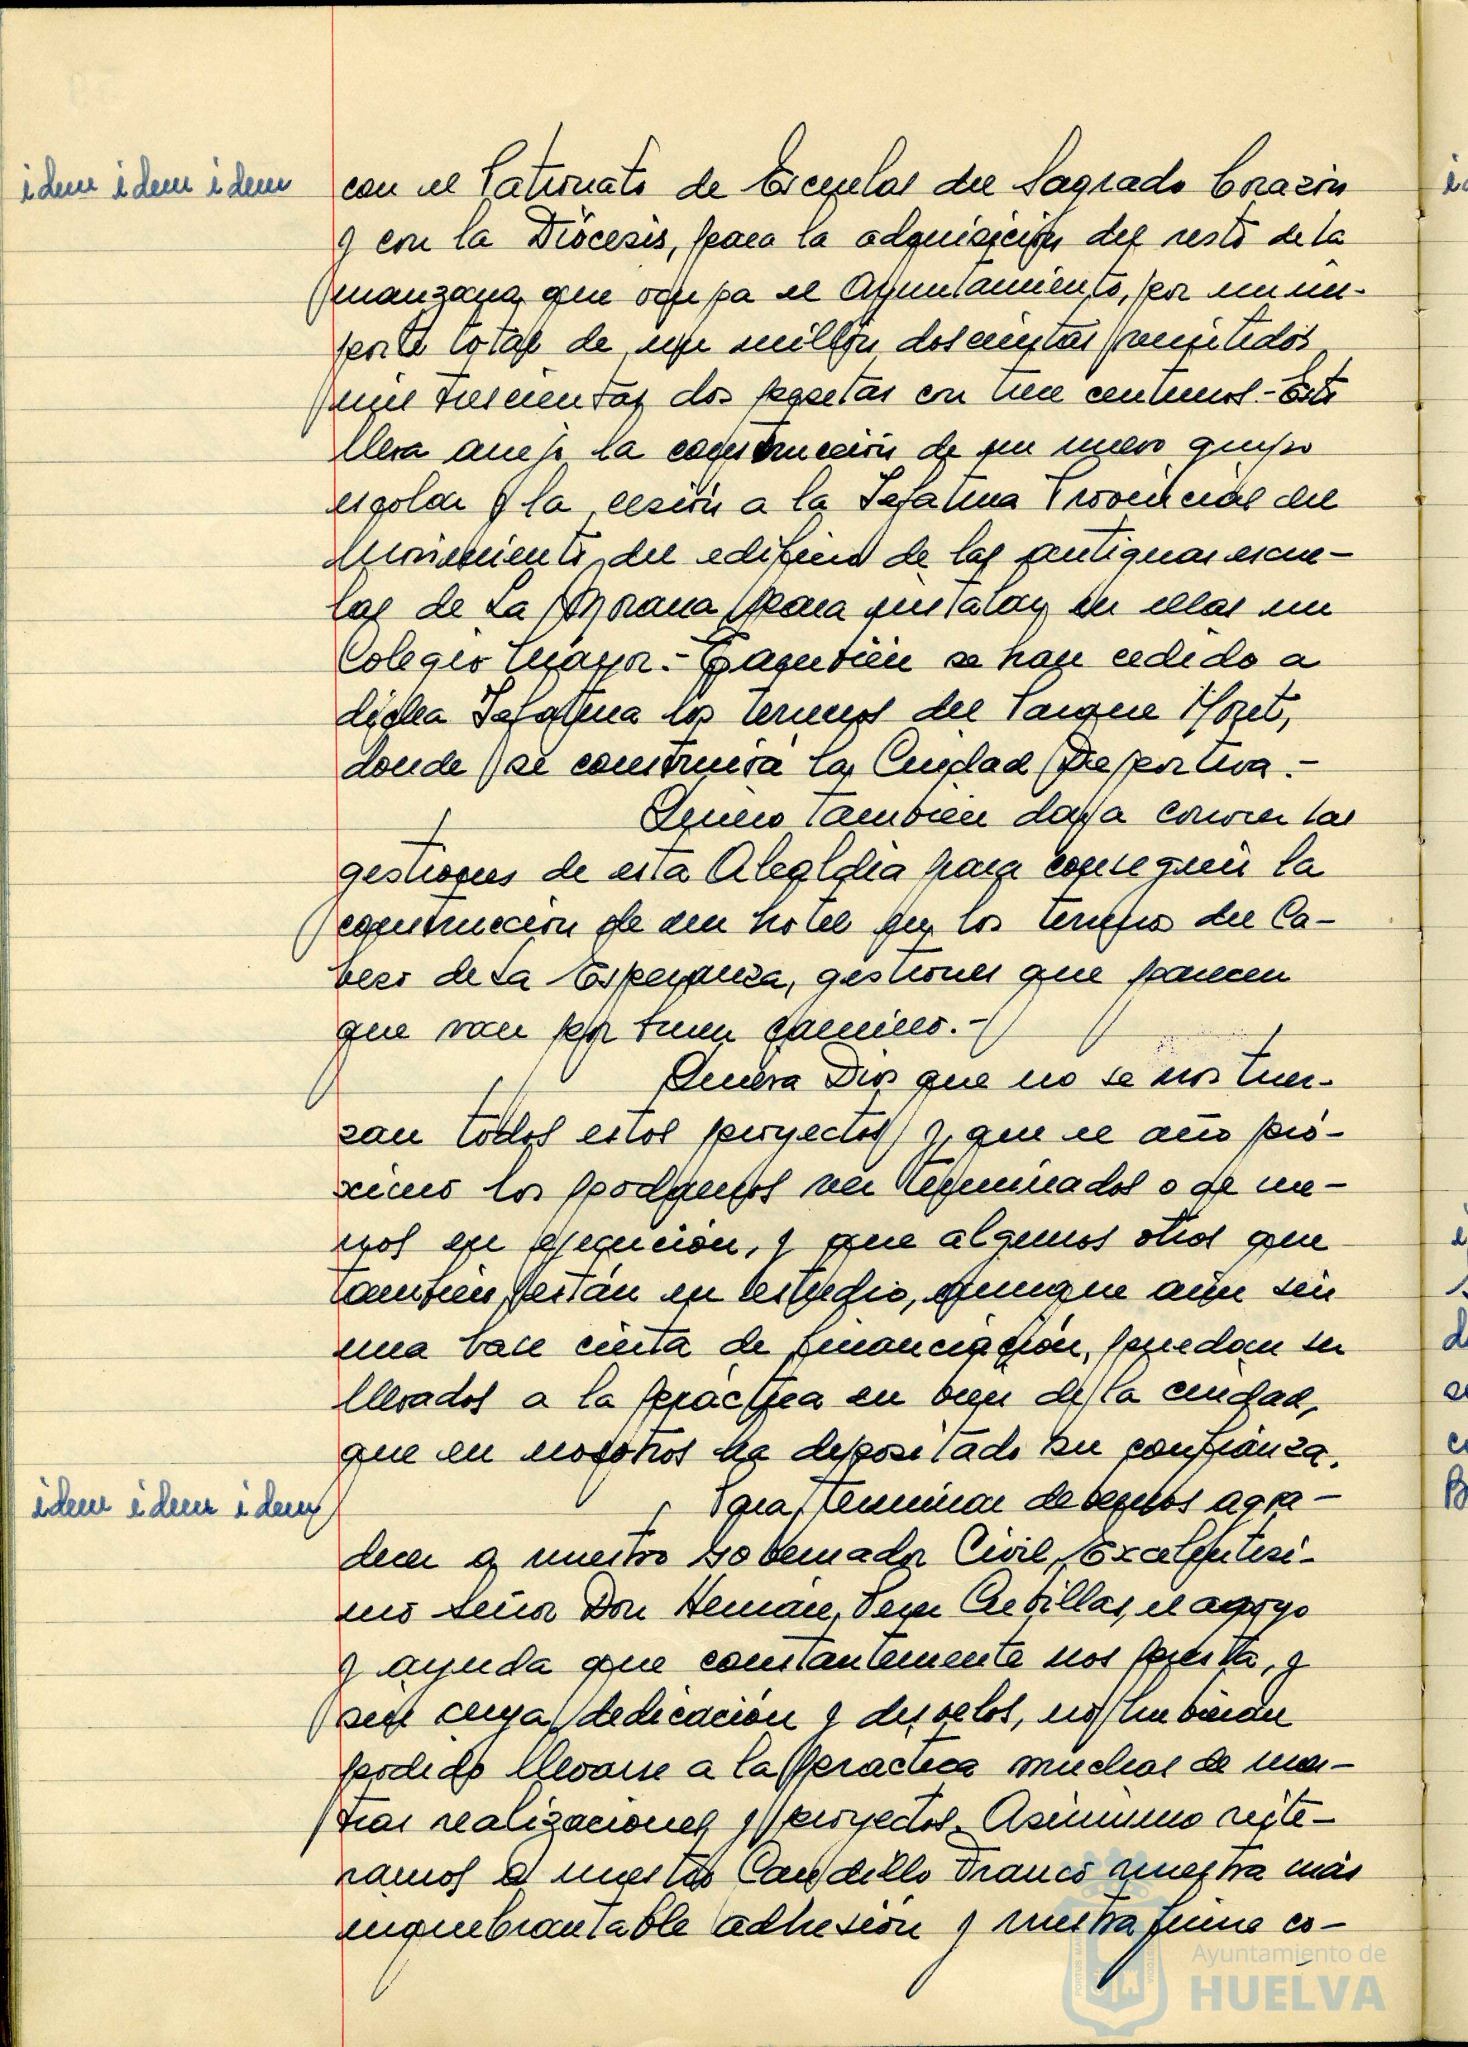 idem idem idem
con el Patronato de Escuelas del Sagrado Corazón
y con la Diócesis, para la adquisición del resto de la
manzana que ocupa el Ayuntamiento, por un im-
porte total de un millón doscientas veintidos
mil trescientas dos pesetas con trece centimos.- Esto
lleva anejo la construcción de un nuevo grupo
escolar y la cesión a la Jefatura Provincial del
Movimiento, del edificio de las antiguas escue-
las de La Morana para instalar en ellas un
Colegio Mayor.- También se han cedido a
dicha Jefatura los terrenos del Parque Moret,
donde se construirá la Ciudad Deportiva.-
Quiero también dar a conocer las
gestiones de esta Alcaldia para conseguir la
construcción de un hotel en los terrenos del Ca-
bezo de La Esperanza, gestiones que parecen
que van por buen camino.-
Quiera Dios que no se nos tuer-
zan todos estos proyectos y que el año pró-
ximo los podamos ver terminados o al me-
nos en ejecución, y que algunos otros que
también están en estudio, aunque aún sin
una base cierta de financiación, puedan ser
llevados a la práctica en bien de la ciudad,
que en nosotros ha depositado su confianza.
idem idem idem
Para terminar debemos agra-
decer a nuestro Gobernador Civil, Excelentísi-
mo Señor Don Hernán Pérez Cubillas, el apoyo
y ayuda que constantemente nos presta, y
sin cuya dedicación y desvelos, no hubieran
podido llevarse a la práctica muchas de nues-
tras realizaciones y proyectos. Asimismo reite-
ramos a nuestro Caudillo Franco nuestra más
inquebrantable adhesión y nuestra firme co-
Ayuntamiento de
HUELVA